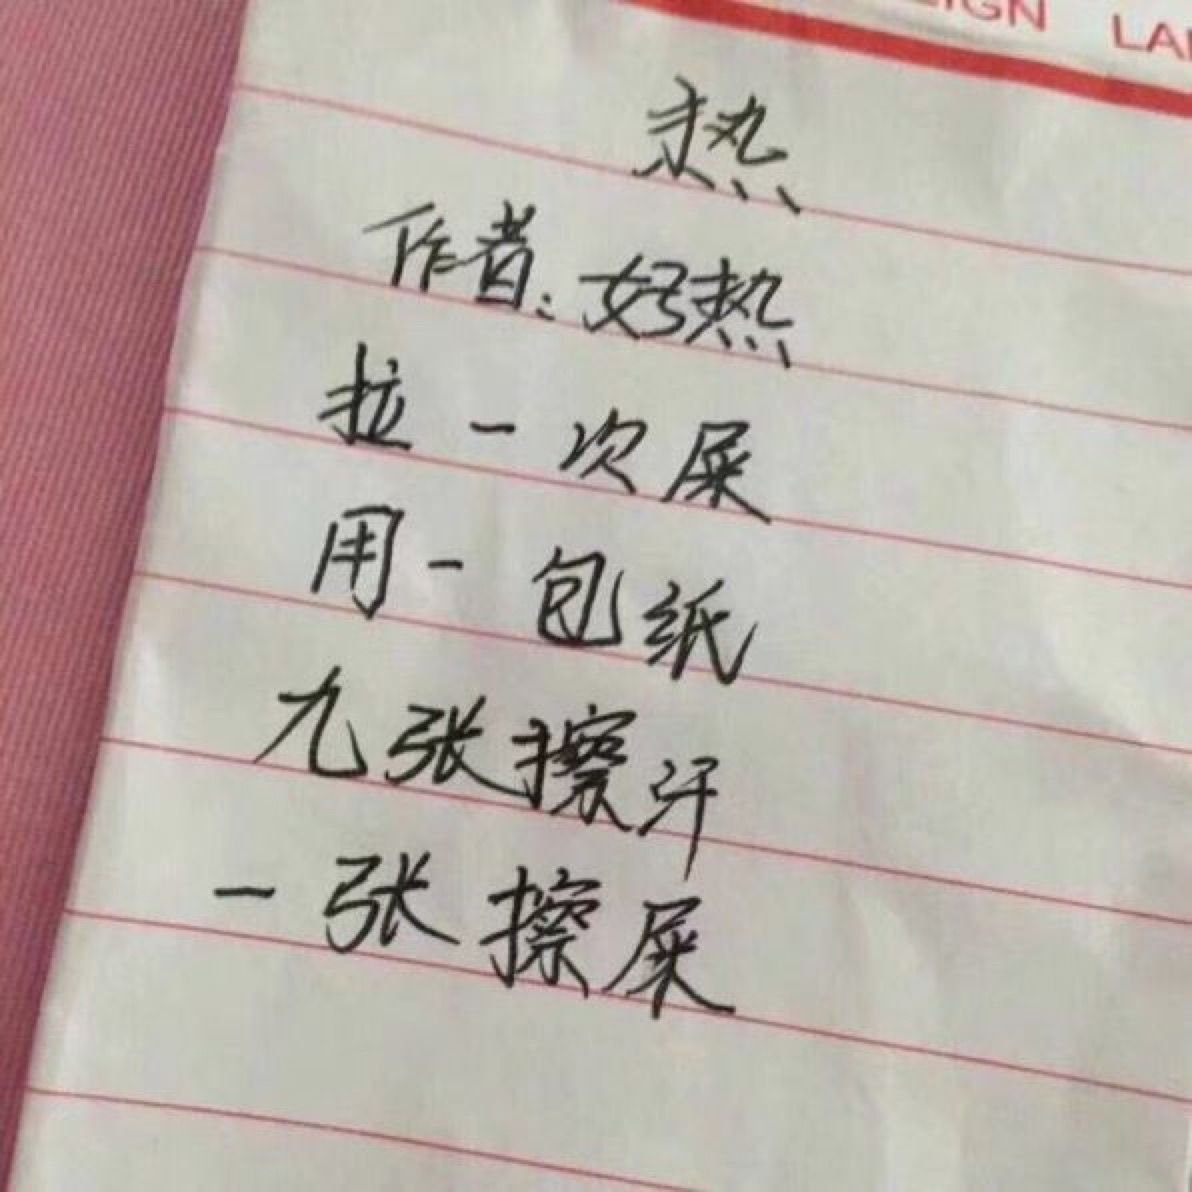 EIGN LAN
热
作者:好热
拉一次屎
用一包纸
九张擦汗
一张擦屎